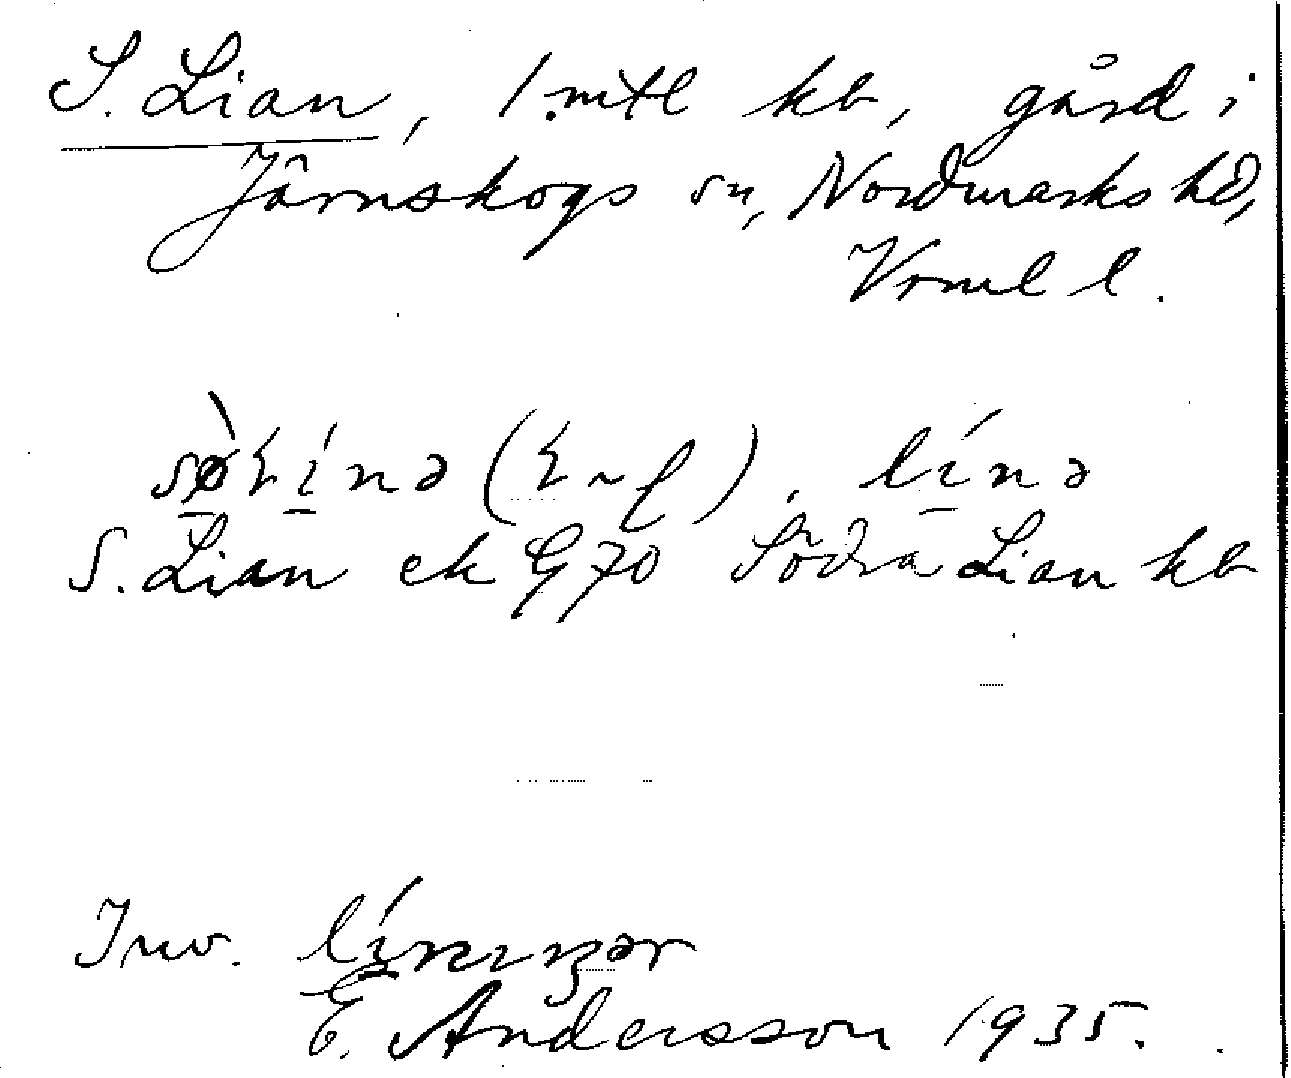 S. Lian, 1 mtl kb, gård i
Järnskogs sn, Nordmarks hd,
Vrml l.
línə
S. Lian ek G 70 Södra Lian kb
Inv.
E. Andersson 1935.